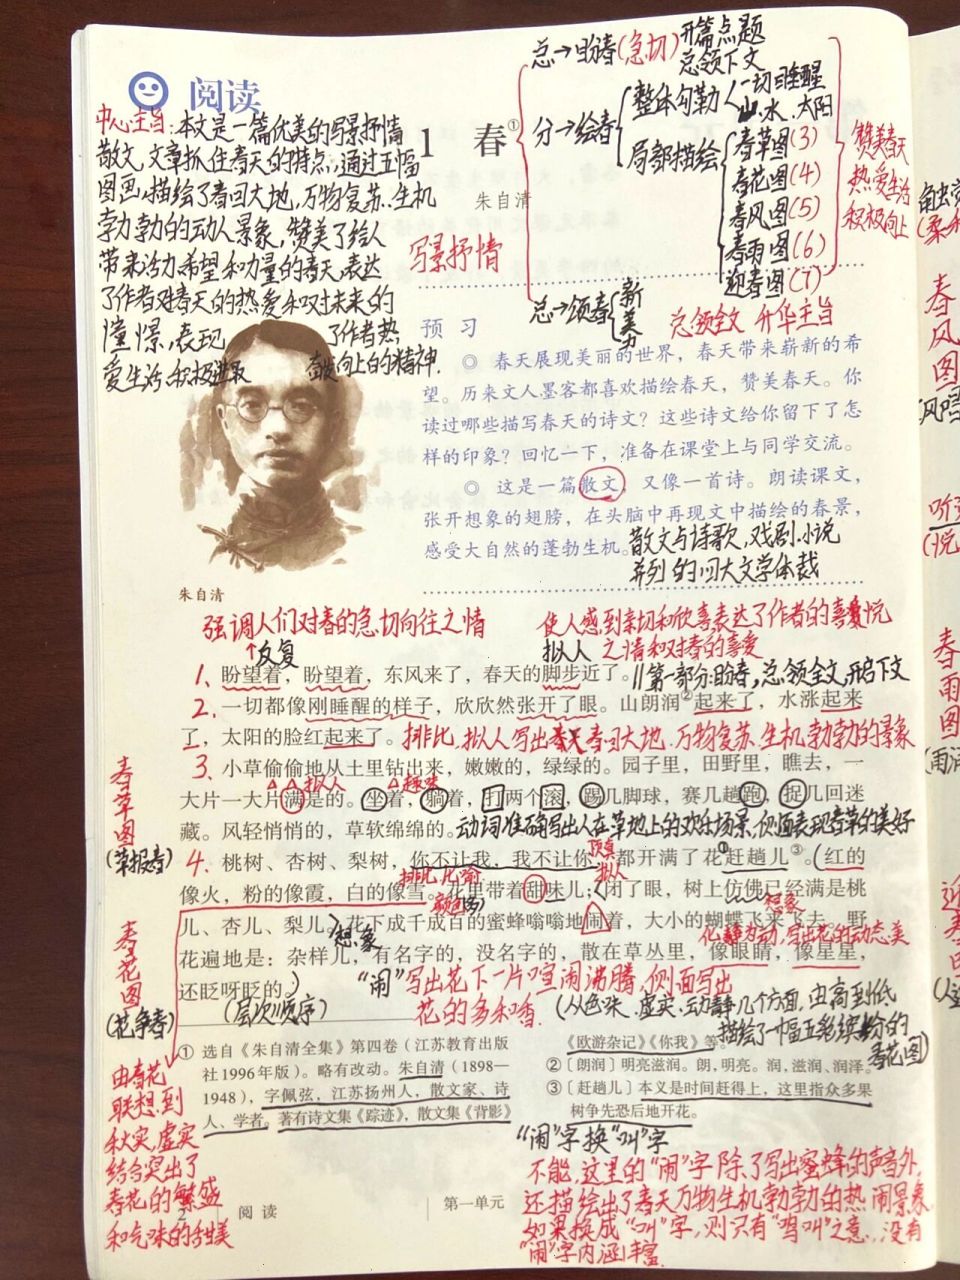 阅读
1 春①
朱自清
中心主旨:本文是一篇优美的写景抒情
散文,文章抓住春天的特点,通过五幅
图画,描绘了春回大地,万物复苏,生机
勃勃的动人景象,赞美了给人
带来活力,希望和力量的春天,表达
了作者对春天的热爱和对未来的
憧憬,表现了作者热
爱生活,积极进取奋发向上的精神.
写景抒情
总→盼春(急切)开篇点题
总领下文
分→绘春
整体勾勒 一切睡醒
山.水.太阳
局部描绘
春草图(3)
春花图(4)
春风图(5)
春雨图(6)
迎春图(7)
总→颂春 新
美
力
总领全文 升华主旨
赞美春天
热爱生活
积极向上
预习
◎ 春天展现美丽的世界，春天带来崭新的希
望。历来文人墨客都喜欢描绘春天，赞美春天。你
读过哪些描写春天的诗文？这些诗文给你留下了怎
样的印象？回忆一下，准备在课堂上与同学交流。
◎ 这是一篇散文，又像一首诗。朗读课文，
张开想象的翅膀，在头脑中再现文中描绘的春景，
感受大自然的蓬勃生机。
散文与诗歌,戏剧.小说
并列的四大文学体裁
朱自清
强调人们对春的急切向往之情
↑反复
使人感到亲切和欣喜表达了作者的喜悦
拟人 之情和对春的喜爱
1、盼望着，盼望着，东风来了，春天的脚步近了。//第一部分:盼春,总领全文,开启下文
2、一切都像刚睡醒的样子，欣欣然张开了眼。山朗润②起来了，水涨起来
了，太阳的脸红起来了。排比.拟人写出春回大地.万物复苏.生机勃勃的景象
3、小草偷偷地从土里钻出来，嫩嫩的，绿绿的。园子里，田野里，瞧去，一
拟人 趣味
大片一大片满是的。坐着，躺着，打两个滚，踢几脚球，赛几趟跑，捉几回迷
藏。风轻悄悄的，草软绵绵的。动词准确写出人在草地上的欢乐场景,侧面表现春草的美好
4、桃树、杏树、梨树，你不让我，我不让你，都开满了花赶趟儿③。(红的
顶真
拟人
排比.比喻
像火，粉的像霞，白的像雪。花里带着甜味儿；闭了眼，树上仿佛已经满是桃
想象
儿、杏儿、梨儿。花下成千成百的蜜蜂嗡嗡地闹着，大小的蝴蝶飞来飞去。野
想象
化静为动,写出花的动态美
花遍地是：杂样儿，有名字的，没名字的，散在草丛里，像眼睛，像星星，
还眨呀眨的。)
"闹"写出花下一片喧闹沸腾,侧面写出
花的多和香.
(层次顺序)
(从色.味.虚实.动静几个方面,由高到低
描绘了一幅五彩缤纷的
春花图)
春草图
(草报春)
春花图
(花争春)
由春花
联想到
秋实,虚实
结合突出了
春花的繁盛
和气味的甜美
① 选自《朱自清全集》第四卷（江苏教育出版
社1996年版）。略有改动。朱自清（1898—
1948），字佩弦，江苏扬州人，散文家、诗
人、学者。著有诗文集《踪迹》，散文集《背影》
《欧游杂记》《你我》等。
②〔朗润〕明亮滋润。朗，明亮。润，滋润、润泽。
③〔赶趟儿〕本义是时间赶得上，这里指众多果
树争先恐后地开花。
"闹"字换"叫"字
不能,这里的"闹"字除了写出蜜蜂的声音外,
还描绘出了春天万物生机勃勃的热闹景象,
如果换成"叫"字,则只有"鸣叫"之意,没有
"闹"字内涵丰富.
2 阅读
第一单元
春风图
春雨图